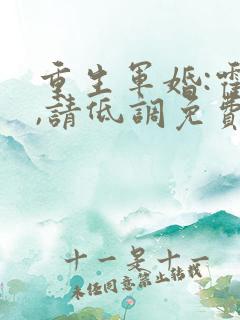 重生軍婚:霍
,請低調免費
十一是十一
未经同意禁止转载